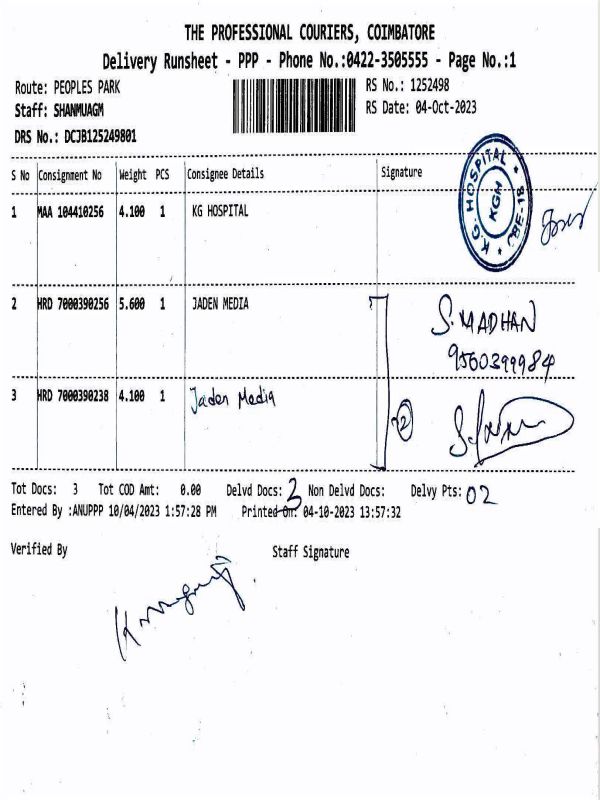 THE PROFESSIONAL COURIERS, COIMBATORE
Delivery Runsheet - PPP - Phone No.:0422-3505555 - Page No.:1
Route: PEOPLES PARK
RS No.: 1252498
Staff: SHANMUAGM
RS Date: 04-Oct-2023
DRS No.: DCJB125249801
S No Consignment No Weight PCS Consignee Details Signature
1 MAA 104410256 4.100 1 KG HOSPITAL
K.G. HOSPITAL
KGH
CBE-18
2 HRD 7000390256 5.600 1 JADEN MEDIA
S. MADHAN
9560399984
3 HRD 7000390238 4.100 1 Jaden Media
2
Tot Docs: 3 Tot COD Amt: 0.00 Delvd Docs: 3 Non Delvd Docs: Delvy Pts: 02
Entered By :ANUPPP 10/04/2023 1:57:28 PM Printed On: 04-10-2023 13:57:32
Verified By Staff Signature